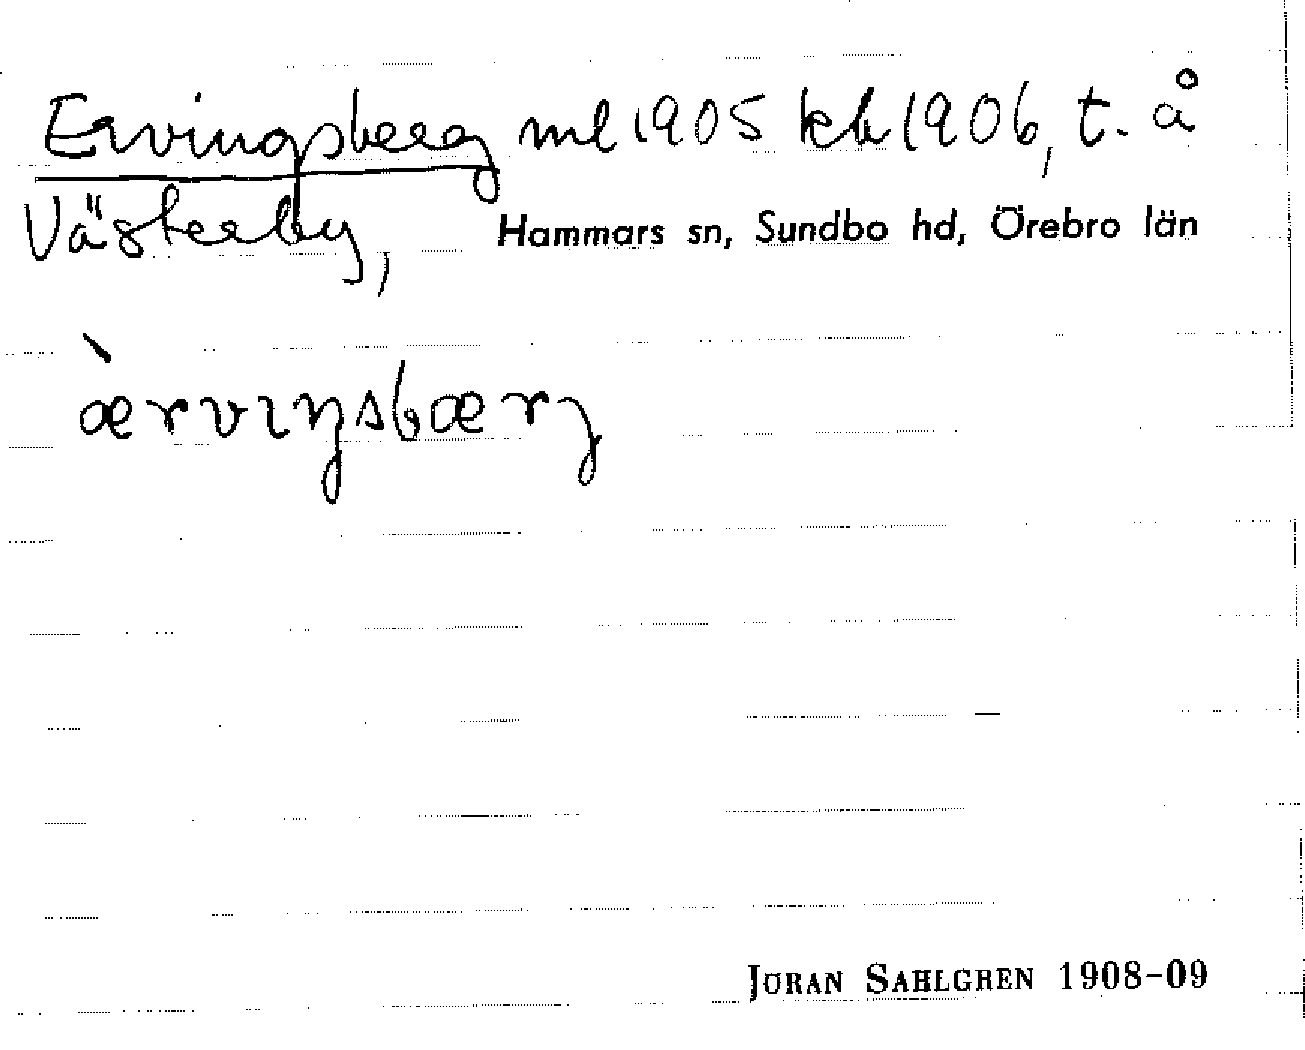 Ervingsberg ml 1905 kb 1906, t. å
Västerby, Hammars sn, Sundbo hd, Örebro län
æ̀rvıŋsbærj
JÖRAN SAHLGREN 1908-09